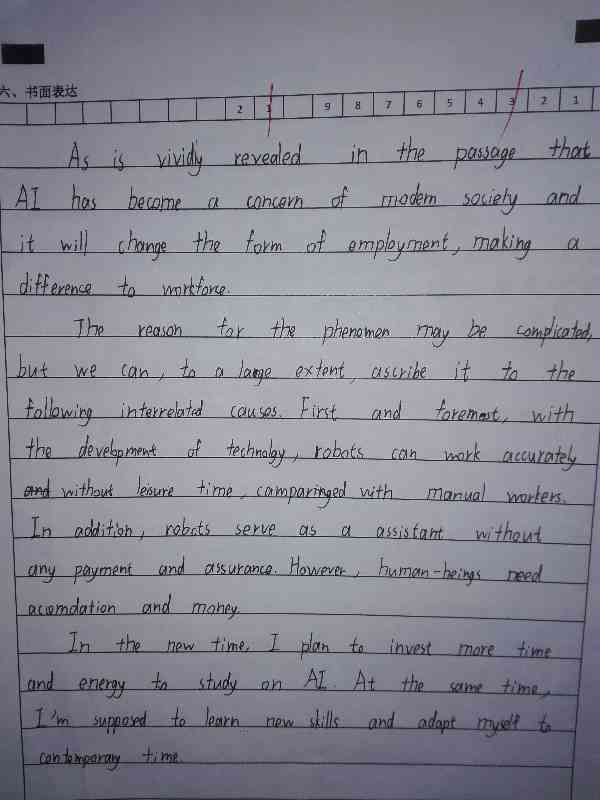 六、书面表达
2 1 9 8 7 6 5 4 3 2 1
As is vividly revealed in the passage that
AI has become a concern of modern society and
it will change the form of employment, making a
difference to workforce.
The reason for the phenomen may be complicated,
but we can, to a large extent, ascribe it to the
following interrelated causes. First and foremost, with
the development of technology, robots can work accurately
and without leisure time, comparinged with manual workers.
In addition, robots serve as a assistant without
any payment and assurance. However, human-beings need
acomdation and money.
In the new time, I plan to invest more time
and energy to study on AI. At the same time,
I'm supposed to learn new skills and adapt myself to
contemporary time.